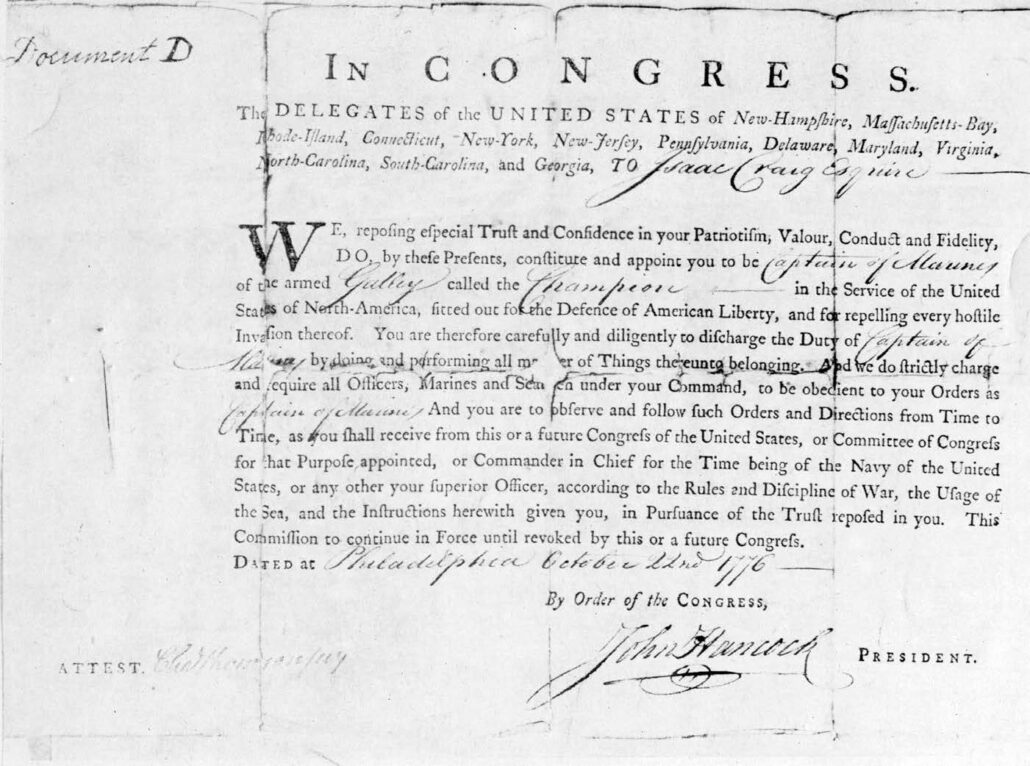 Document D
IN CONGRESS.
The DELEGATES of the UNITED STATES of New-Hampſhire, Maſſachuſetts-Bay,
Rhode-Iſland, Connecticut, New-York, New-Jerſey, Pennſylvania, Delaware, Maryland, Virginia,
North-Carolina, South-Carolina, and Georgia, TO Isaac Craig Esquire
WE, repoſing eſpecial Truſt and Confidence in your Patriotiſm, Valour, Conduct and Fidelity,
DO, by theſe Preſents, conſtitute and appoint you to be Captain of Marines
of the armed Galley called the Champion in the Service of the United
States of North-America, fitted out for the Defence of American Liberty, and for repelling every hoſtile
Invaſion thereof. You are therefore carefully and diligently to diſcharge the Duty of Captain of
Marines by doing and performing all manner of Things thereunto belonging. And we do ſtrictly charge
and require all Officers, Marines and Seamen under your Command, to be obedient to your Orders as
Captain of Marines And you are to obſerve and follow ſuch Orders and Directions from Time to
Time, as you ſhall receive from this or a future Congreſs of the United States, or Committee of Congreſs
for that Purpoſe appointed, or Commander in Chief for the Time being of the Navy of the United
States, or any other your ſuperior Officer, according to the Rules and Diſcipline of War, the Uſage of
the Sea, and the Inſtructions herewith given you, in Purſuance of the Truſt repoſed in you. This
Commiſſion to continue in Force until revoked by this or a future Congreſs.
DATED at Philadelphia October 22nd 1776
By Order of the CONGRESS,
John Hancock PRESIDENT.
ATTEST. Chas Thomson secy